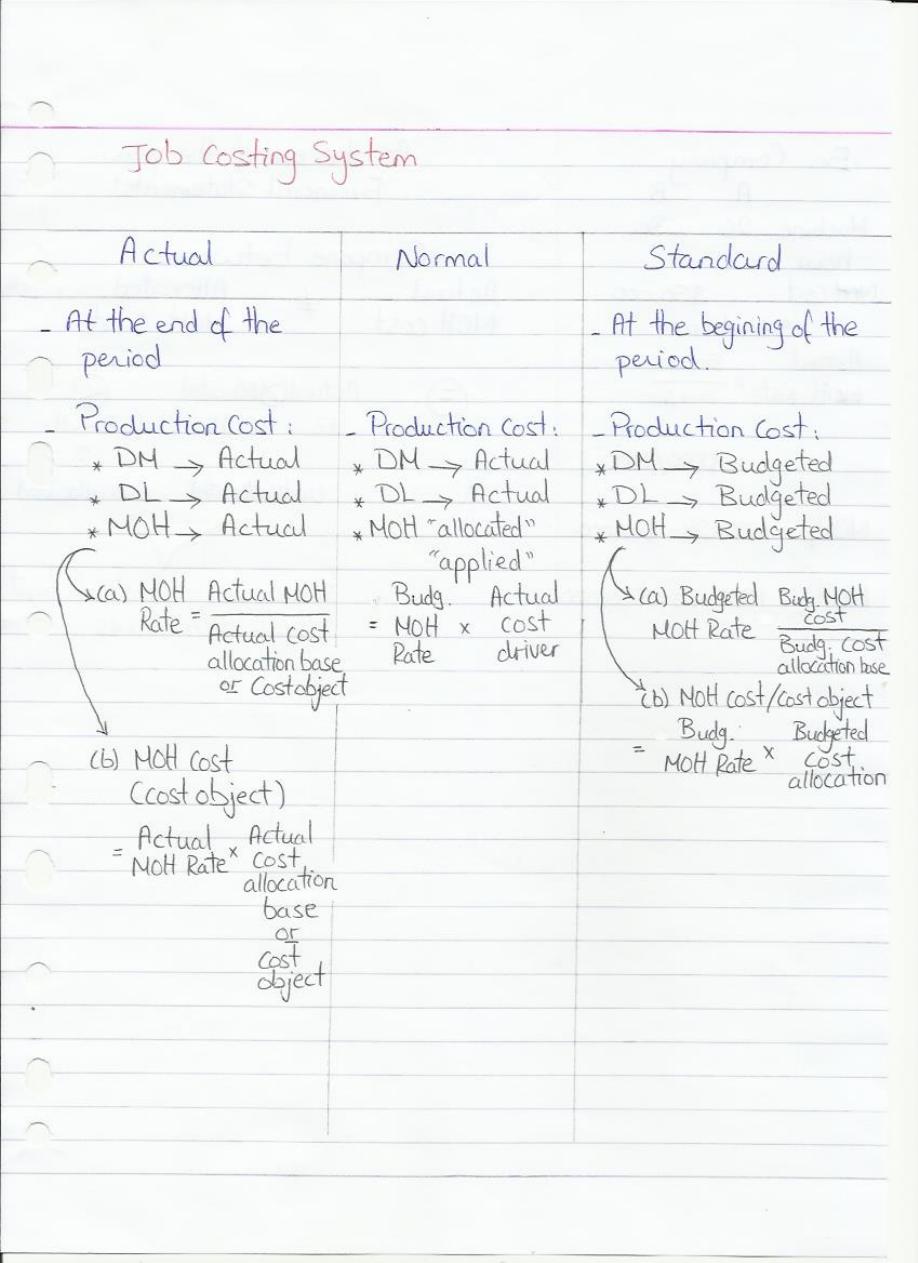 Job Costing System
Actual
- At the end of the
period
- Production Cost :
* DM → Actual
* DL → Actual
* MOH → Actual
(a) MOH Actual MOH
Rate = Actual cost
allocation base
or Cost object
(b) MOH Cost
(cost object)
= Actual × Actual
MOH Rate Cost
allocation
base
or
cost
object
Normal
- Production Cost:
* DM → Actual
* DL → Actual
* MOH "allocated"
"applied"
Budg. Actual
= MOH × cost
Rate driver
Standard
- At the begining of the
period.
- Production Cost :
* DM → Budgeted
* DL → Budgeted
* MOH → Budgeted
(a) Budgeted Budg. MOH
MOH Rate cost
Budg. cost
allocation base
(b) MOH cost/cost object
= Budg. × Budgeted
MOH Rate cost
allocation